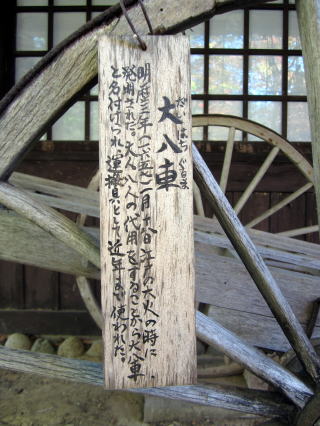 大八車
だいはちぐるま
明暦三年(一六五七)一月十八日江戸の大火の時に
発明された。大人八人の代用をすることから大八車
と名付けられ運搬具として近年まで使われた。